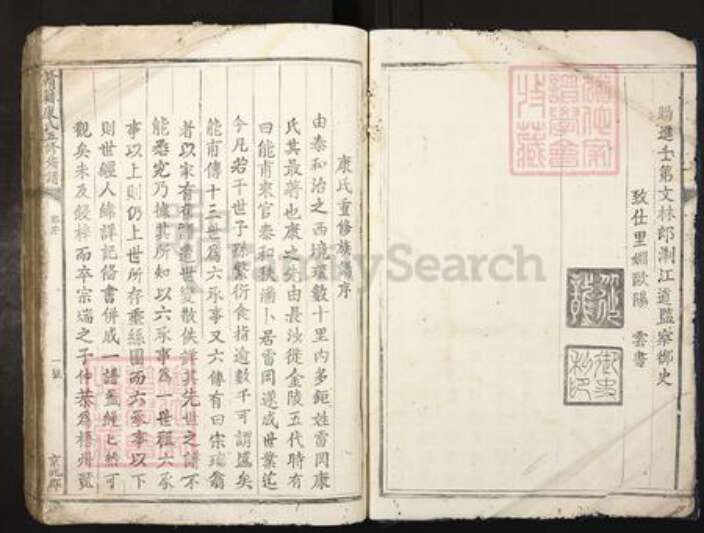 賜進士第文林郎浙江道監察御史
致仕里姻歐陽 雲書
御史
德化家譜學會收藏
康氏重修族譜序
由泰和治之西境環數十里內多鉅姓雷岡康
氏其最著也康之先由長沙徙金陵五代時有
曰能甫來官泰和秩滿卜居雷岡遂成世業迄
今凡若干世子孫繁衍食指逾數千可謂盛矣
能甫傳十三世為六承事又六傳有曰宗瑞翁
者以家有舊譜遭世變散佚詳其先世之譜不
能悉究乃據其所知以六承事為一世祖六承
事以上則仍上世所存垂絲圖而六承事以下
則世經人緯詳記備書併成一譜蓋繩上然可
觀矣未及鋟梓而卒宗瑞之子仲恭為梧州號
康氏五修族譜
一號
京兆郡
FamilySearch